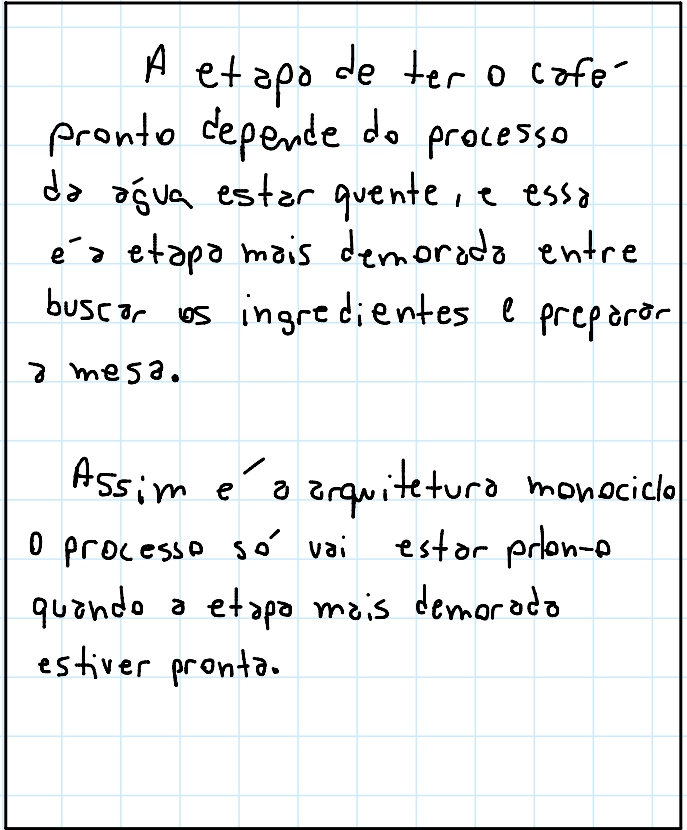 A etapa de ter o café
pronto depende do processo
da água estar quente, e essa
é a etapa mais demorada entre
buscar os ingredientes e preparar
a mesa.
Assim é a arquitetura monociclo
O processo só vai estar prlon-o
quando a etapa mais demorada
estiver pronta.